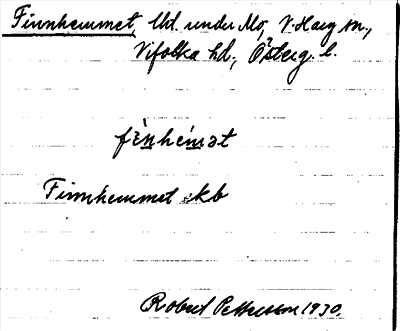 Finnhemmet, Ud. under Mo, V. Harg sn.,
Vifolka hd., Österg. l.
fìnhém̀ət
Finnhemmet skb
Robert Pettersson 1930.